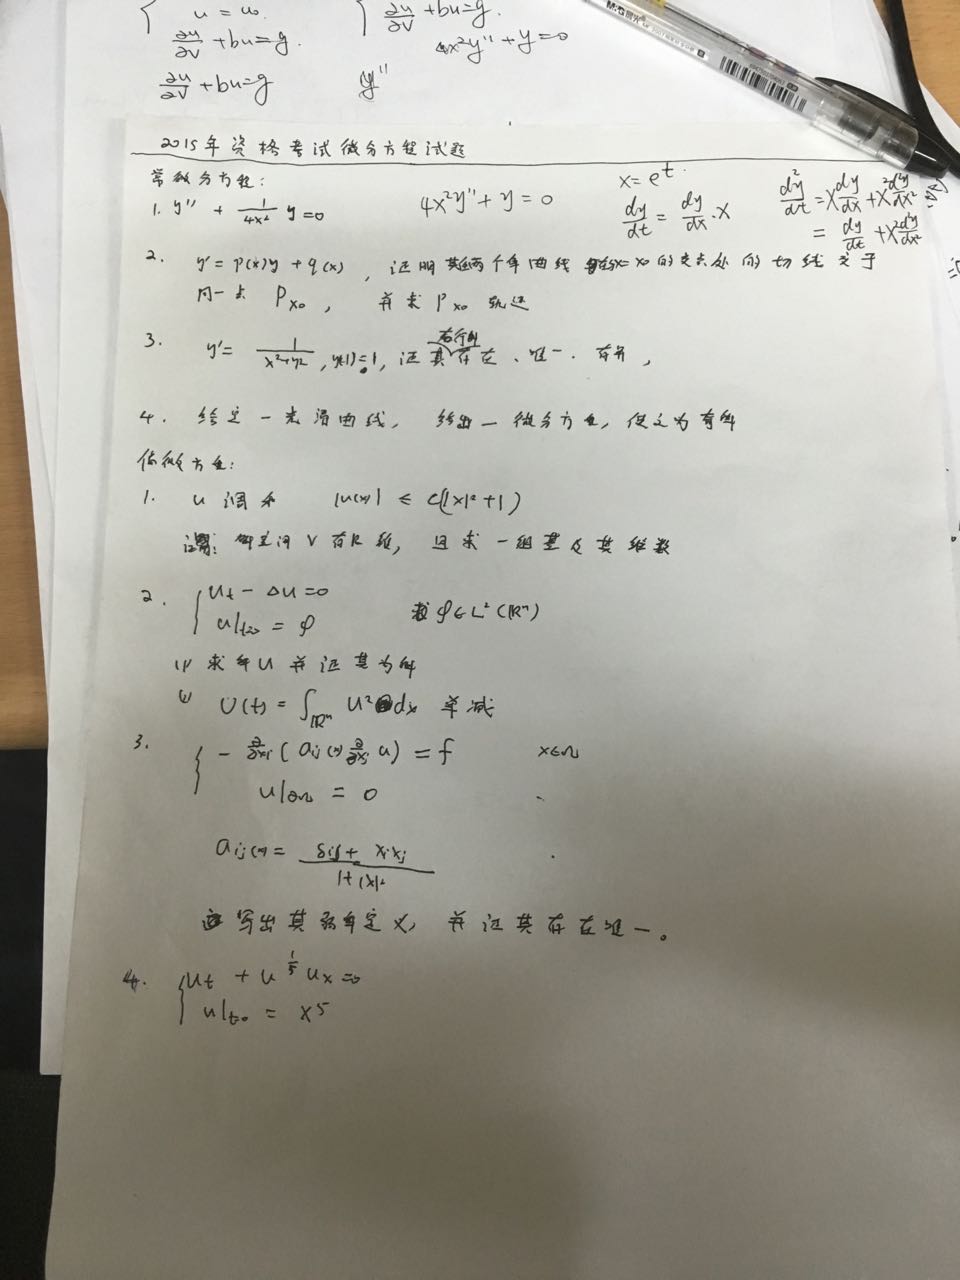 u = u₀
∂u/∂ν + bu = g.
∂u/∂ν + bu = g
∂u/∂ν + bu = g.
4x²y'' + y = 0
y''
M&G晨光
2015年资格考试微分方程试题
常微分方程:
1. y'' + 1/(4x²) y = 0
4x²y'' + y = 0
x = e^t.
dy/dt = dy/dx · x
d²y/dt = x dy/dx + x² d²y/dx²
= dy/dt + x² d²y/dx²
2. y' = p(x)y + q(x), 证明其两个解曲线 在x=x₀的交点处的切线交于
同一点 P_{x₀}, 并求 P_{x₀} 轨迹
3. y' = 1/(x²+y²), y(1)=1, 证其右行解存在、唯一、有界,
4. 给定一光滑曲线, 给出一微分方程, 使之为奇解
偏微方程:
1. u 调和 |u(x)| ≤ C(|x|²+1)
证明: 解空间 V 有限维, 且求一组基及其维数
2. { u_t - Δu = 0
u|_{t=0} = φ φ∈L²(ℝⁿ)
(1) 求解 u 并证其为解
(2) U(t) = ∫_{ℝⁿ} u² dx 单减
3. { - ∂/∂x_i ( a_{ij}(x) ∂/∂x_j u) = f x∈Ω
u|_{∂Ω} = 0
a_{ij}(x) = (δ_{ij} + x_i x_j)/(1+|x|²)
写出其弱解定义, 并证其存在唯一。
4. { u_t + u^{1/5} u_x = 0
u|_{t=0} = x⁵